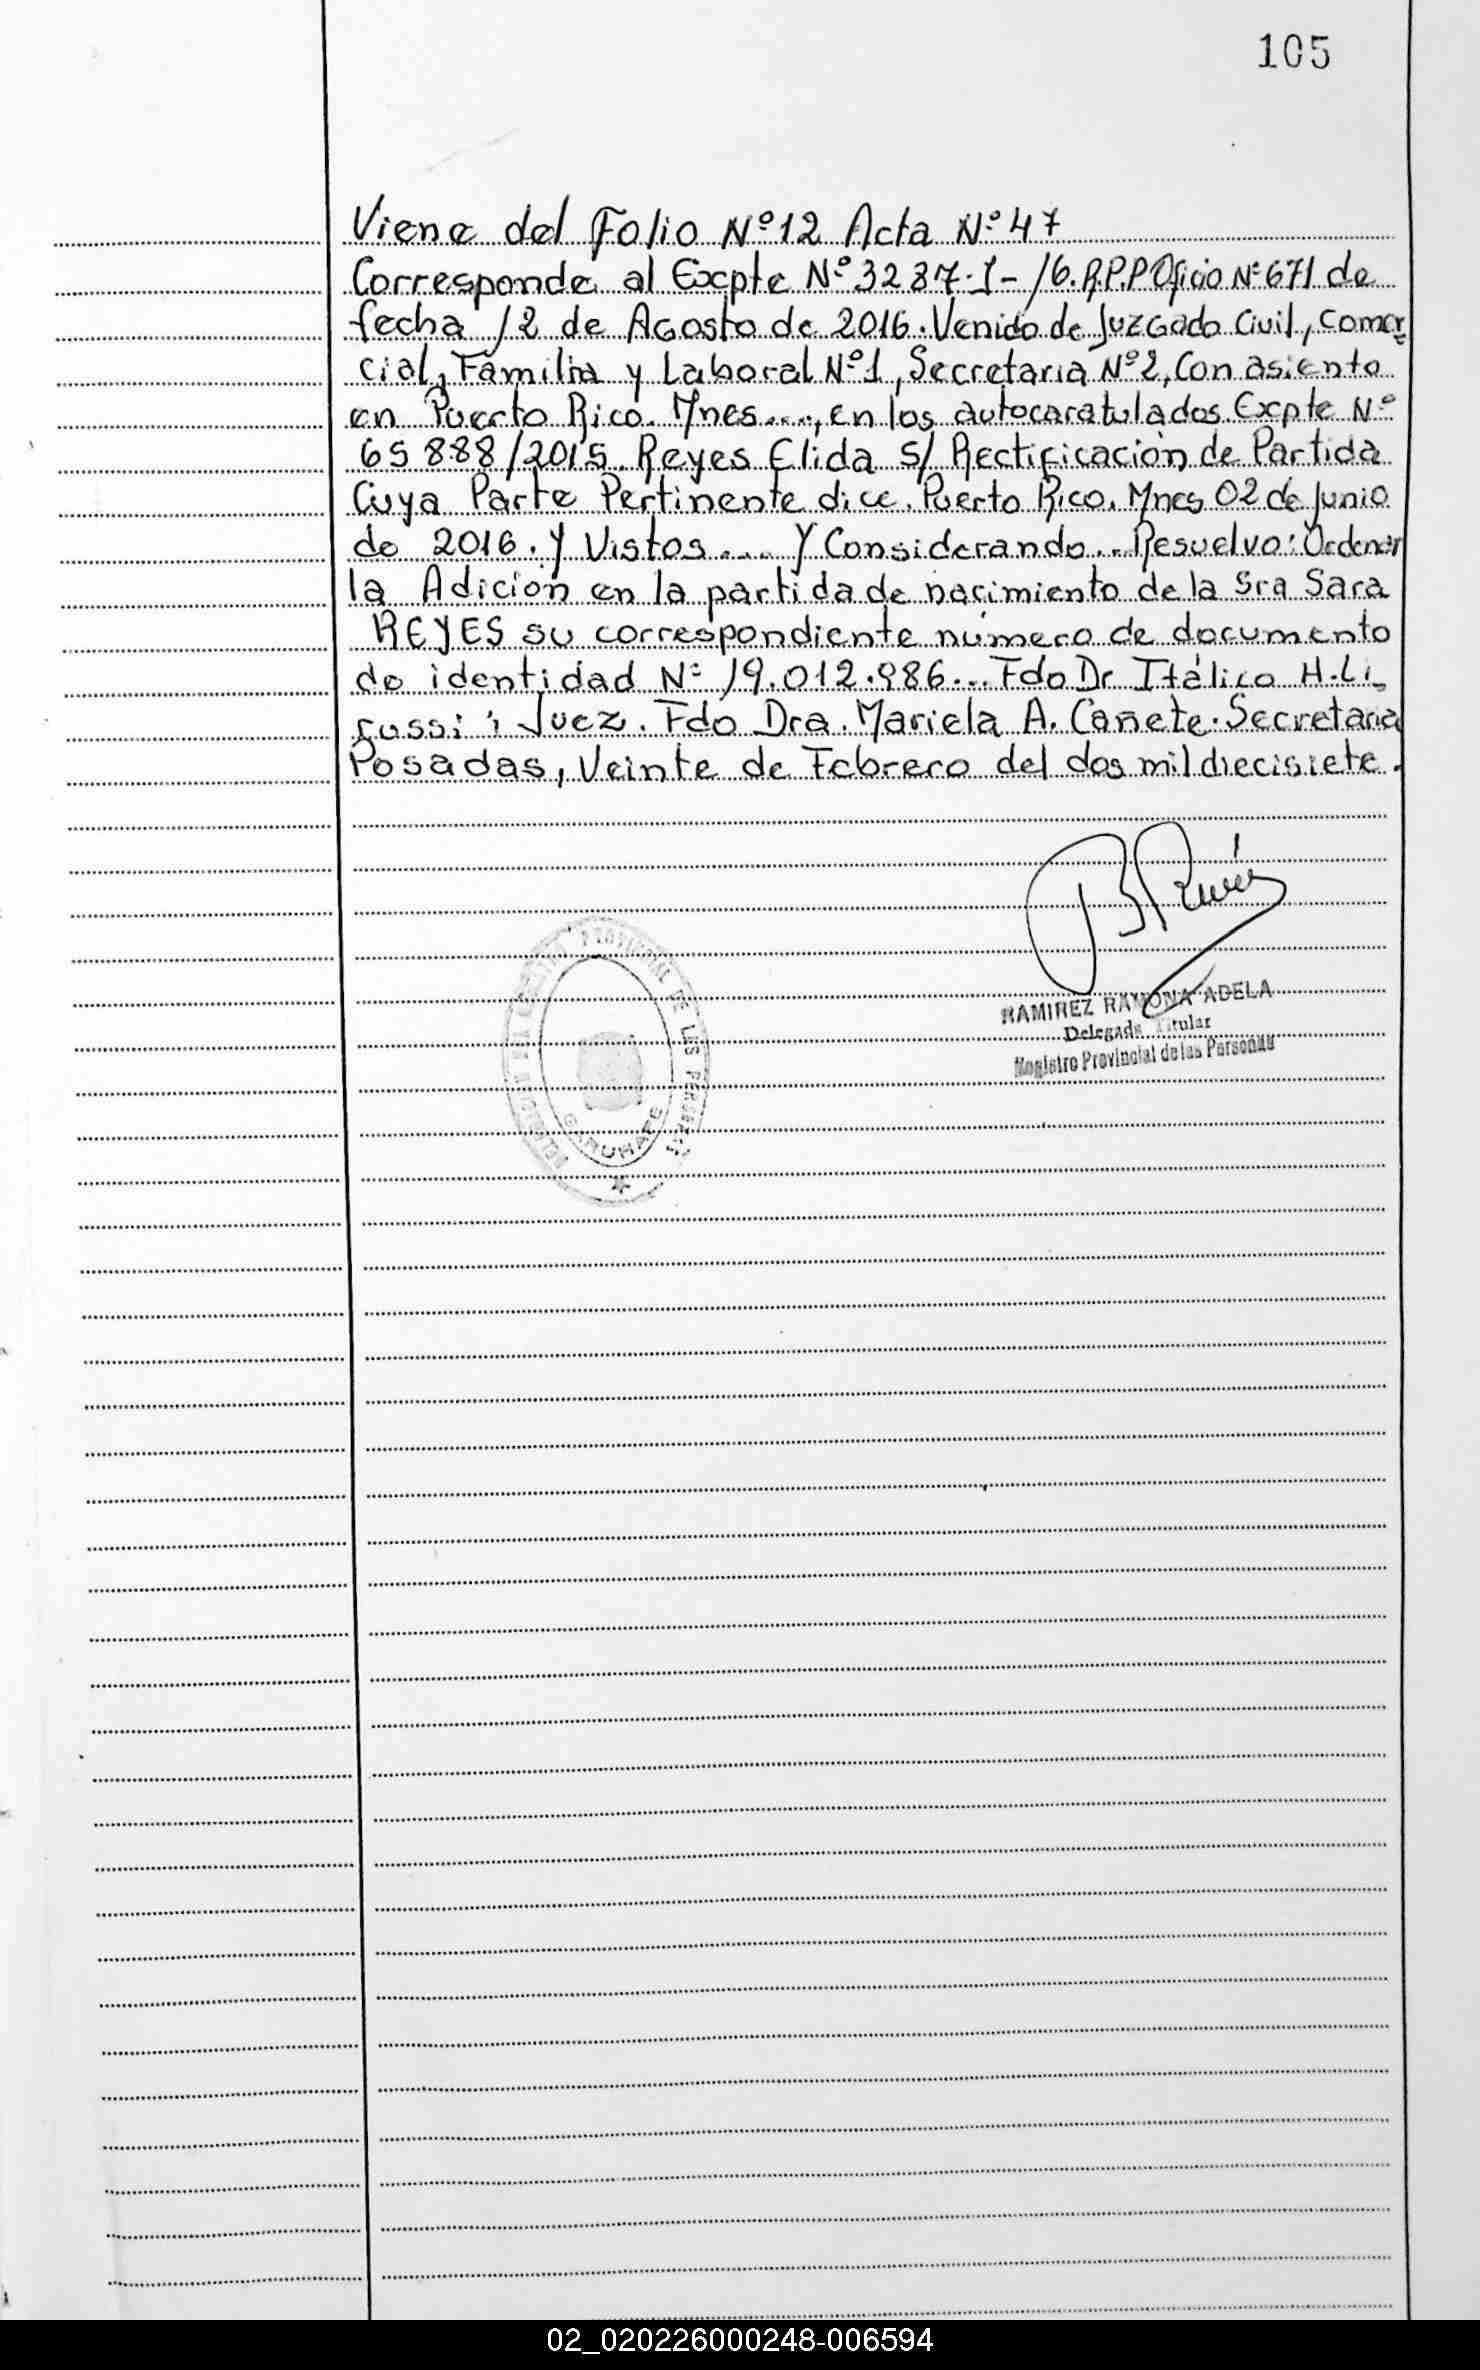 105
Viene del Folio Nº 12 Acta Nº 47
Corresponde al Excpte Nº 3287-I-16.R.P.P Oficio Nº 671 de
fecha 12 de Agosto de 2016. Venido de Juzgado Civil, Comer
cial, Familia y Laboral Nº 1, Secretaria Nº 2, Con asiento
en Puerto Rico. Mnes...., en los autocaratulados Excpte Nº
65888/2015. Reyes Elida S/ Rectificación de Partida
Cuya Parte Pertinente dice. Puerto Rico. Mnes 02 de Junio
de 2016. Y Vistos.... Y Considerando... Resuelvo: Ordenar
la Adición en la partida de nacimiento de la Sra Sara
REYES su correspondiente número de documento
de identidad Nº 19.012.986... Fdo Dr Itálico H. Li_
sussi; Juez. Fdo Dra. Mariela A. Cañete. Secretaria
Posadas, Veinte de Febrero del dos mil diecisiete.
RAMIREZ RAMONA ADELA
Delegada Titular
Registro Provincial de las Personas
REGISTRO PROVINCIAL DE LAS PERSONAS
GARUHAPE
02_020226000248-006594